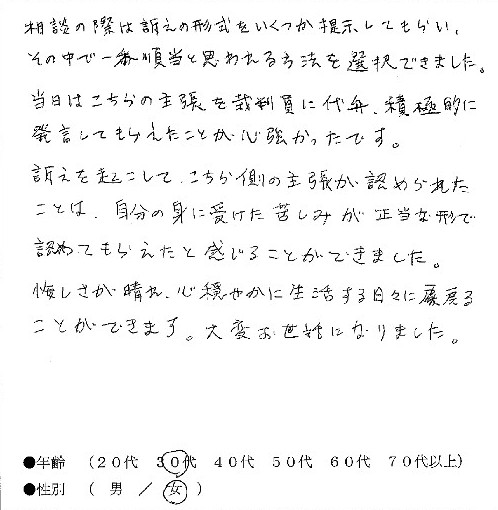 相談の際は訴えの形式をいくつか提示してもらい、
その中で一番順当と思われる方法を選択できました。
当日はこちらの主張を裁判員に代弁、積極的に
発言してもらえたことが心強かったです。
訴えを起こして、こちら側の主張が認められた
ことは、自分の身に受けた苦しみが正当な形で
認めてもらえたと感じることができました。
悔しさが晴れ、心穏やかに生活する日々に戻る
ことができます。大変お世話になりました。
●年齢 （２０代 ３０代 ４０代 ５０代 ６０代 ７０代以上）
●性別 （ 男 ／ 女 ）